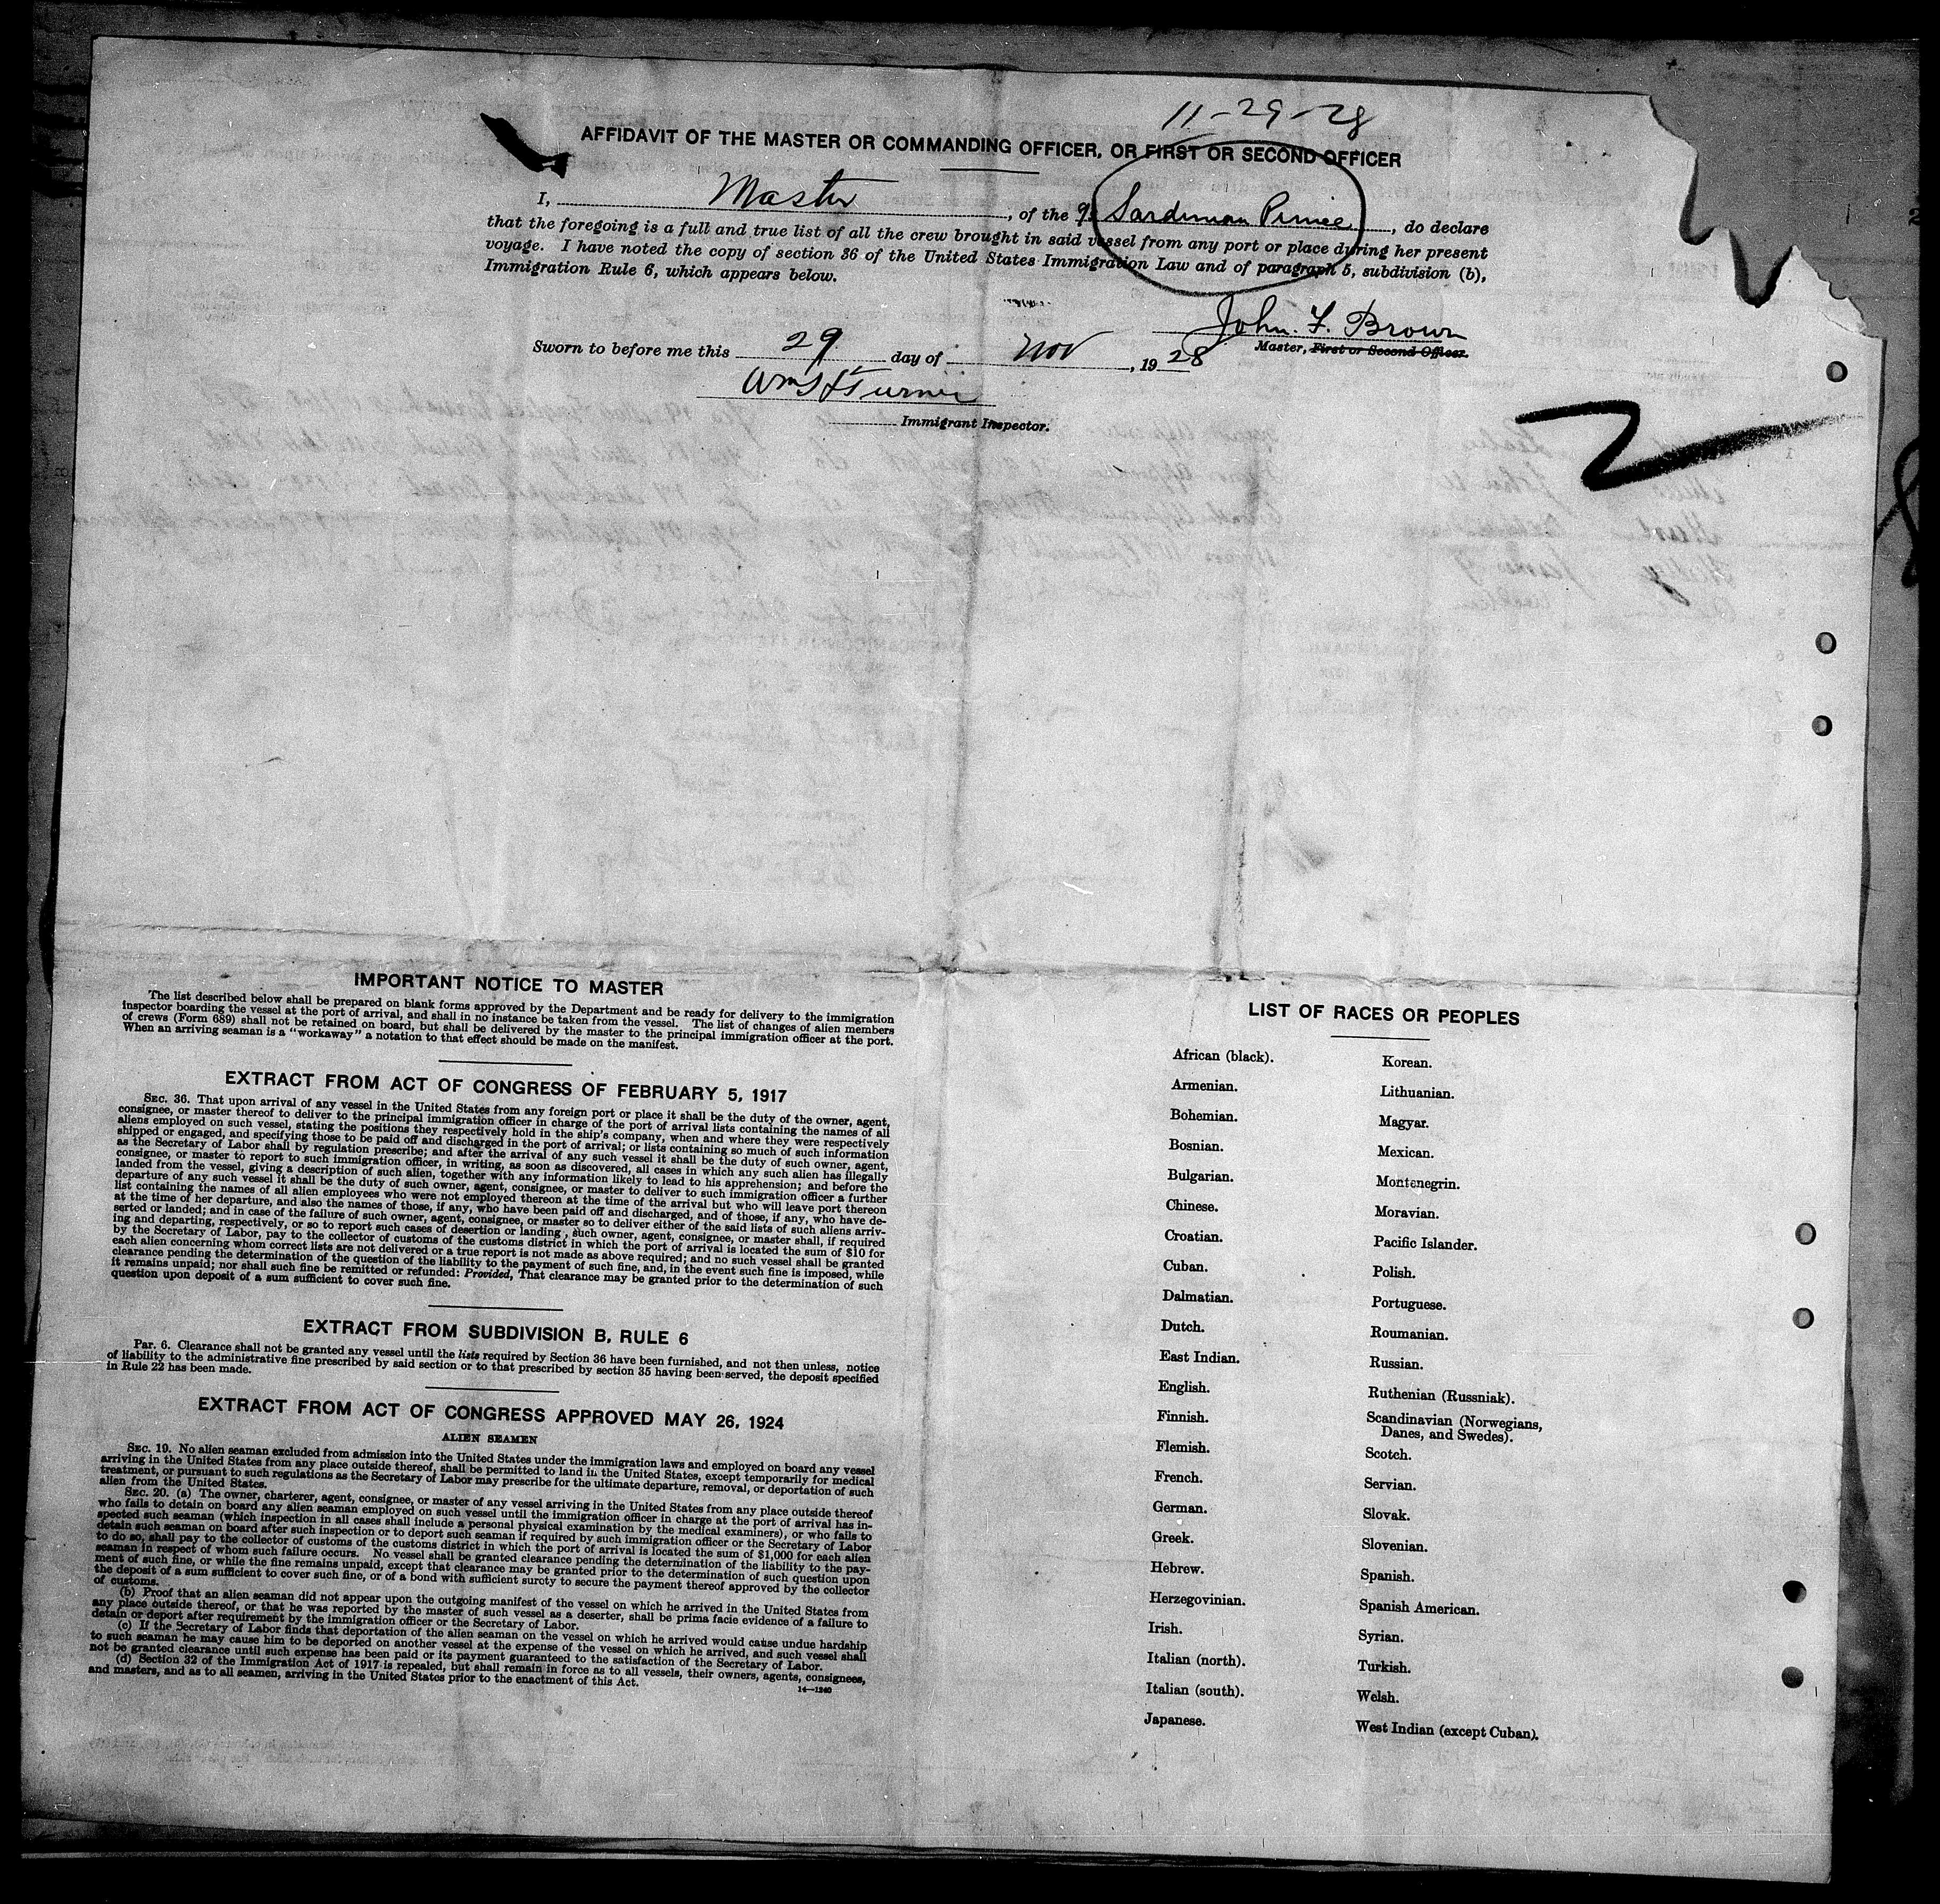 11-29-28
AFFIDAVIT OF THE MASTER OR COMMANDING OFFICER, OR FIRST OR SECOND OFFICER
I, Master, of the Sardinian Prince, do declare
that the foregoing is a full and true list of all the crew brought in said vessel from any port or place during her present
voyage. I have noted the copy of section 36 of the United States Immigration Law and of paragraph 5, subdivision (b),
Immigration Rule 6, which appears below.
John. F. Brown
Master, First or Second Officer.
Sworn to before me this 29 day of Nov, 1928
Wm S Turner
Immigrant Inspector.
IMPORTANT NOTICE TO MASTER
The list described below shall be prepared on blank forms approved by the Department and be ready for delivery to the immigration
inspector boarding the vessel at the port of arrival, and shall in no instance be taken from the vessel. The list of changes of alien members
of crews (Form 689) shall not be retained on board, but shall be delivered by the master to the principal immigration officer at the port.
When an arriving seaman is a "workaway" a notation to that effect should be made on the manifest.
EXTRACT FROM ACT OF CONGRESS OF FEBRUARY 5, 1917
SEC. 36. That upon arrival of any vessel in the United States from any foreign port or place it shall be the duty of the owner, agent,
consignee, or master thereof to deliver to the principal immigration officer in charge of the port of arrival lists containing the names of all
aliens employed on such vessel, stating the positions they respectively hold in the ship's company, when and where they were respectively
shipped or engaged, and specifying those to be paid off and discharged in the port of arrival; or lists containing so much of such information
as the Secretary of Labor shall by regulation prescribe; and after the arrival of any such vessel it shall be the duty of such owner, agent,
consignee, or master to report to such immigration officer, in writing, as soon as discovered, all cases in which any such alien has illegally
landed from the vessel, giving a description of such alien, together with any information likely to lead to his apprehension; and before the
departure of any such vessel it shall be the duty of such owner, agent, consignee, or master to deliver to such immigration officer a further
list containing the names of all alien employees who were not employed thereon at the time of the arrival but who will leave port thereon
at the time of her departure, and also the names of those, if any, who have been paid off and discharged, and of those, if any, who have de-
serted or landed; and in case of the failure of such owner, agent, consignee, or master so to deliver either of the said lists of such aliens arriv-
ing and departing, respectively, or so to report such cases of desertion or landing, such owner, agent, consignee, or master shall, if required
by the Secretary of Labor, pay to the collector of customs of the customs district in which the port of arrival is located the sum of $10 for
each alien concerning whom correct lists are not delivered or a true report is not made as above required; and no such vessel shall be granted
clearance pending the determination of the question of the liability to the payment of such fine, and, in the event such fine is imposed, while
it remains unpaid; nor shall such fine be remitted or refunded: Provided, That clearance may be granted prior to the determination of such
question upon deposit of a sum sufficient to cover such fine.
EXTRACT FROM SUBDIVISION B, RULE 6
Par. 6. Clearance shall not be granted any vessel until the lists required by Section 36 have been furnished, and not then unless, notice
of liability to the administrative fine prescribed by said section or to that prescribed by section 35 having been served, the deposit specified
in Rule 22 has been made.
EXTRACT FROM ACT OF CONGRESS APPROVED MAY 26, 1924
ALIEN SEAMEN
SEC. 19. No alien seaman excluded from admission into the United States under the immigration laws and employed on board any vessel
arriving in the United States from any place outside thereof, shall be permitted to land in the United States, except temporarily for medical
treatment, or pursuant to such regulations as the Secretary of Labor may prescribe for the ultimate departure, removal, or deportation of such
alien from the United States.
SEC. 20. (a) The owner, charterer, agent, consignee, or master of any vessel arriving in the United States from any place outside thereof
who fails to detain on board any alien seaman employed on such vessel until the immigration officer in charge at the port of arrival has in-
spected such seaman (which inspection in all cases shall include a personal physical examination by the medical examiners), or who fails to
detain such seaman on board after such inspection or to deport such seaman if required by such immigration officer or the Secretary of Labor
to do so, shall pay to the collector of customs of the customs district in which the port of arrival is located the sum of $1,000 for each alien
seaman in respect of whom such failure occurs. No vessel shall be granted clearance pending the determination of the liability to the pay-
ment of such fine, or while the fine remains unpaid, except that clearance may be granted prior to the determination of such question upon
the deposit of a sum sufficient to cover such fine, or of a bond with sufficient surety to secure the payment thereof approved by the collector
of customs.
(b) Proof that an alien seaman did not appear upon the outgoing manifest of the vessel on which he arrived in the United States from
any place outside thereof, or that he was reported by the master of such vessel as a deserter, shall be prima facie evidence of a failure to
detain or deport after requirement by the immigration officer or the Secretary of Labor.
(c) If the Secretary of Labor finds that deportation of the alien seaman on the vessel on which he arrived would cause undue hardship
to such seaman he may cause him to be deported on another vessel at the expense of the vessel on which he arrived, and such vessel shall
not be granted clearance until such expense has been paid or its payment guaranteed to the satisfaction of the Secretary of Labor.
(d) Section 32 of the Immigration Act of 1917 is repealed, but shall remain in force as to all vessels, their owners, agents, consignees,
and masters, and as to all seamen, arriving in the United States prior to the enactment of this Act.
14—1240
LIST OF RACES OR PEOPLES
African (black).
Armenian.
Bohemian.
Bosnian.
Bulgarian.
Chinese.
Croatian.
Cuban.
Dalmatian.
Dutch.
East Indian.
English.
Finnish.
Flemish.
French.
German.
Greek.
Hebrew.
Herzegovinian.
Irish.
Italian (north).
Italian (south).
Japanese.
Korean.
Lithuanian.
Magyar.
Mexican.
Montenegrin.
Moravian.
Pacific Islander.
Polish.
Portuguese.
Roumanian.
Russian.
Ruthenian (Russniak).
Scandinavian (Norwegians,
Danes, and Swedes).
Scotch.
Servian.
Slovak.
Slovenian.
Spanish.
Spanish American.
Syrian.
Turkish.
Welsh.
West Indian (except Cuban).